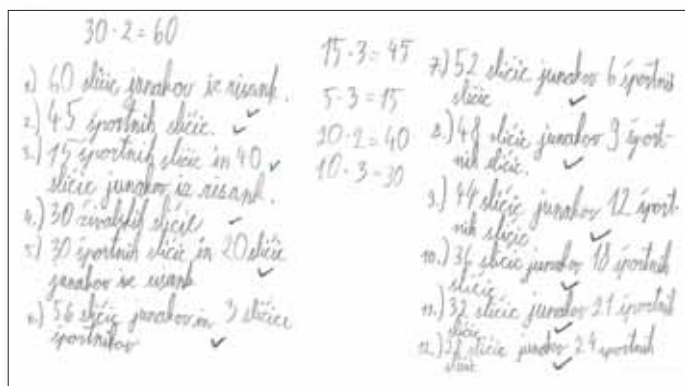 30 · 2 = 60
1.) 60 sličic junakov iz risank.
2.) 45 športnih sličic.
3.) 15 športnih sličic in 40
sličic junakov iz risank.
4.) 30 živalskih sličic
5.) 30 športnih sličic in 20 sličic
junakov iz risank
6.) 56 sličic junakov in 3 sličice
športnikov
15 · 3 = 45
5 · 3 = 15
20 · 2 = 40
10 · 3 = 30
7.) 52 sličic junakov 6 športnih
sličic
8.) 48 sličic junakov 9 šport-
nih sličic.
9.) 44 sličic junakov 12 šport-
nih sličic
10.) 36 sličic junakov 18 športnih
sličic
11.) 32 sličic junakov 21 športnih
sličic
12.) sličic junakov 24 športnih